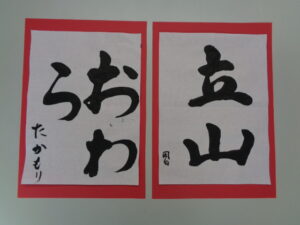 立山
おわら
たかもり